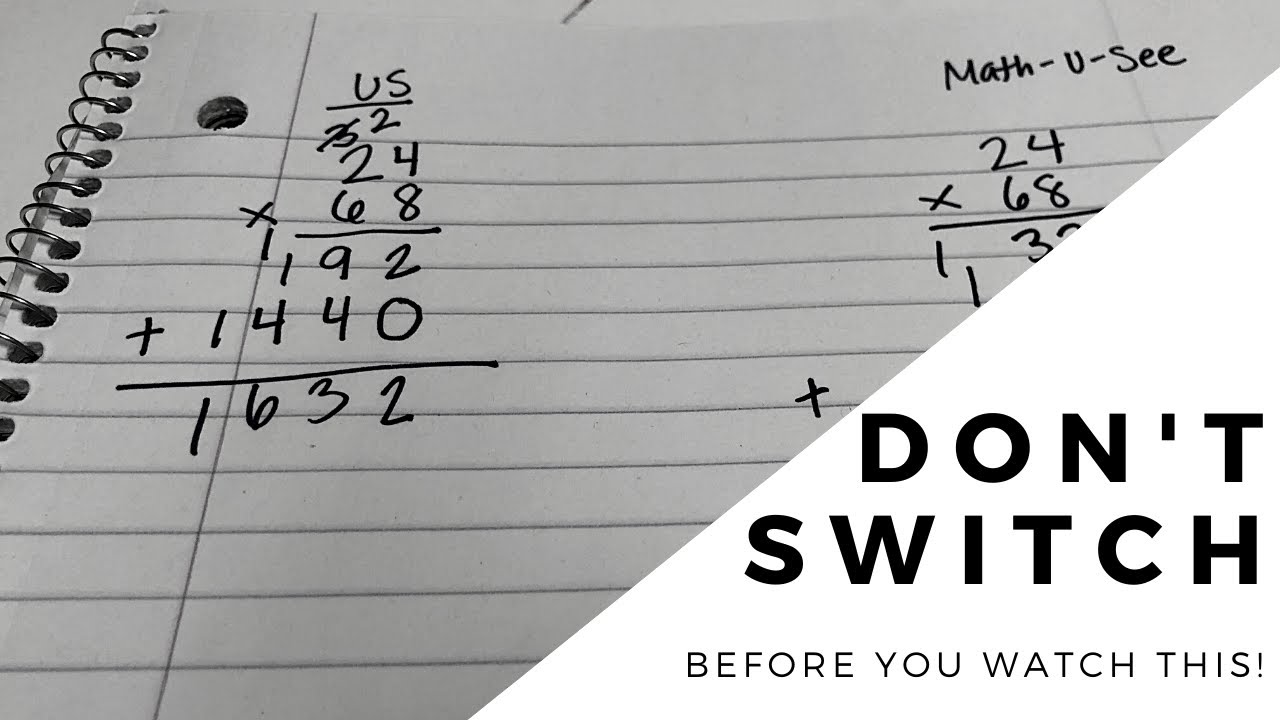 US
2
24
x 68
1
192
+ 1440
1632
Math-U-See
24
x 68
1 3
1
+
DON'T
SWITCH
BEFORE YOU WATCH THIS!